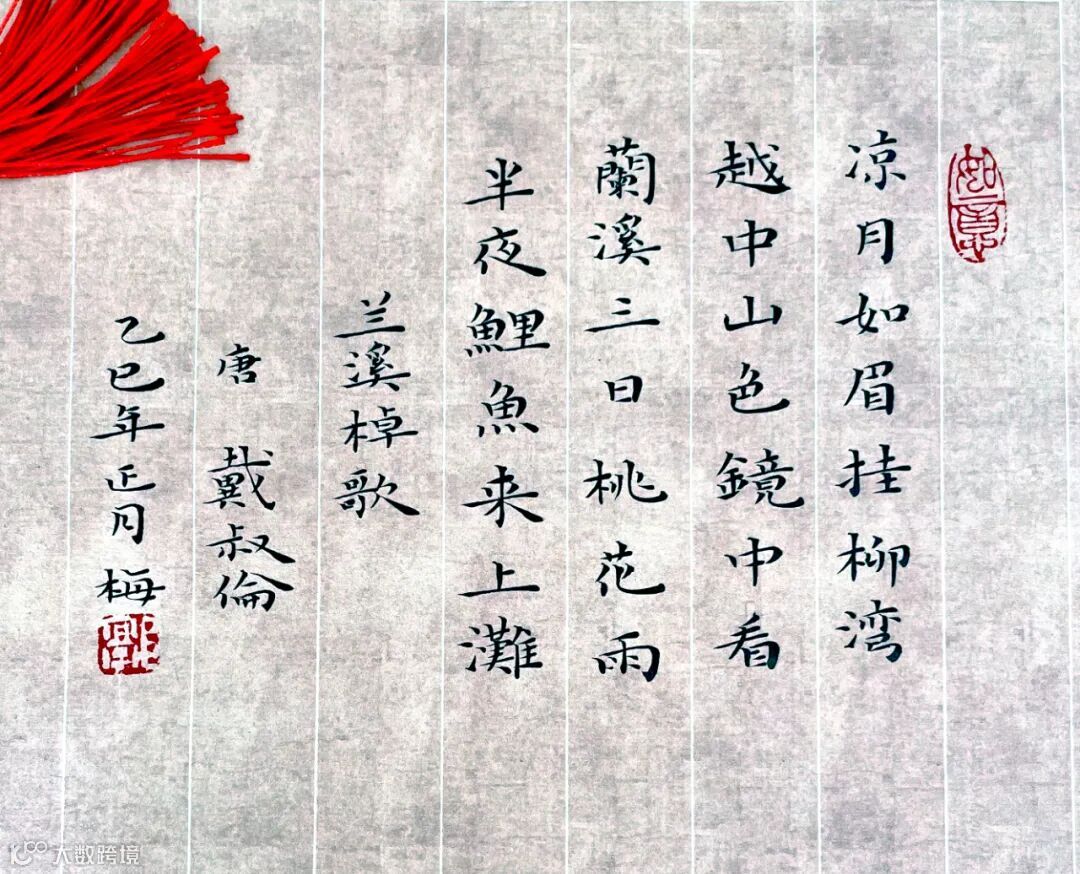 如意
凉月如眉挂柳湾
越中山色鏡中看
蘭溪三日桃花雨
半夜鯉魚来上灘
兰溪棹歌
唐 戴叔倫
乙巳年正月 梅
大数跨境